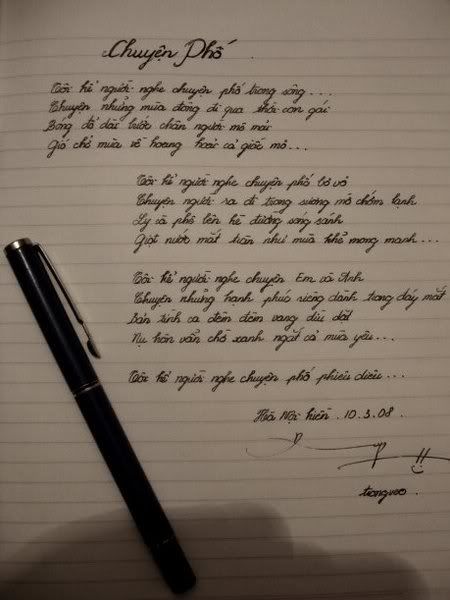 Chuyện Phố
Tôi kể người nghe chuyện phố trong sông...
Chuyện những mùa đông đi qua thời con gái
Bóng đổ dài bước chân người mê mải
Gió chở mùa về hoang hoải cả giấc mơ...
Tôi kể người nghe chuyện phố bơ vơ
Chuyện người ra đi trong sương mờ chớm lạnh
Ly cà phê bên hè đường sóng sánh
Giọt nước mắt tràn như mưa khẽ mong manh...
Tôi kể người nghe chuyện Em và Anh
Chuyện những hạnh phúc riêng dành trong đáy mắt
Bản tình ca đêm đêm vang dìu dặt
Nụ hôn vẫn chờ xanh ngắt cả mùa yêu...
Tôi kể người nghe chuyện phố phiêu diêu...
Hà Nội hiền. 10.3.08.